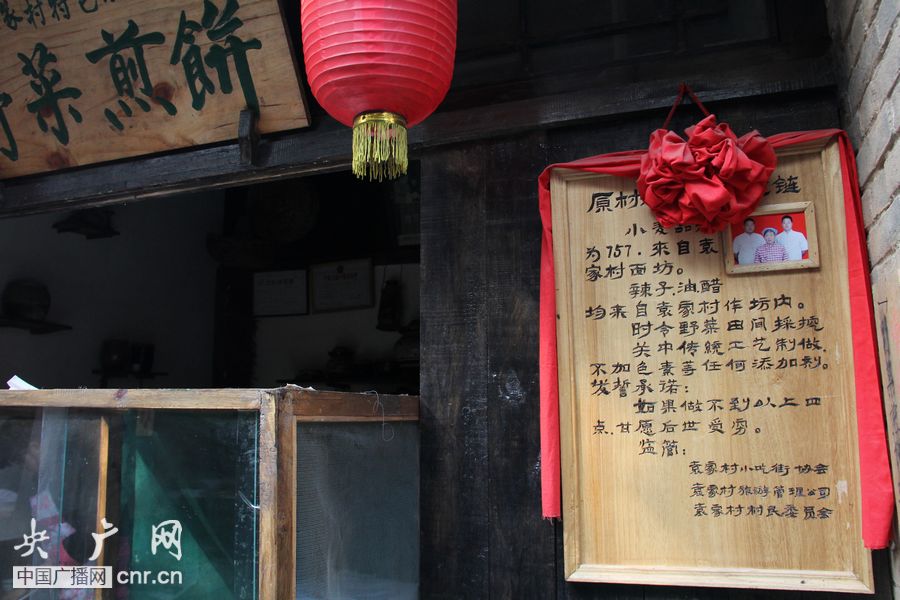 家村特色
野菜煎餅
原村 链
小麦
为757.來自袁
家村面坊。
辣子.油醋
均来自袁家村作坊内。
时令野菜田间採摘
关中传統工艺制做.
不加色素等任何添加剂。
发誓承诺:
如果做不到以上四
点.甘愿后世受穷。
监管:
袁家村小吃街协会
袁家村旅游管理公司
袁家村村民委员会
央广网
中国广播网 cnr.cn